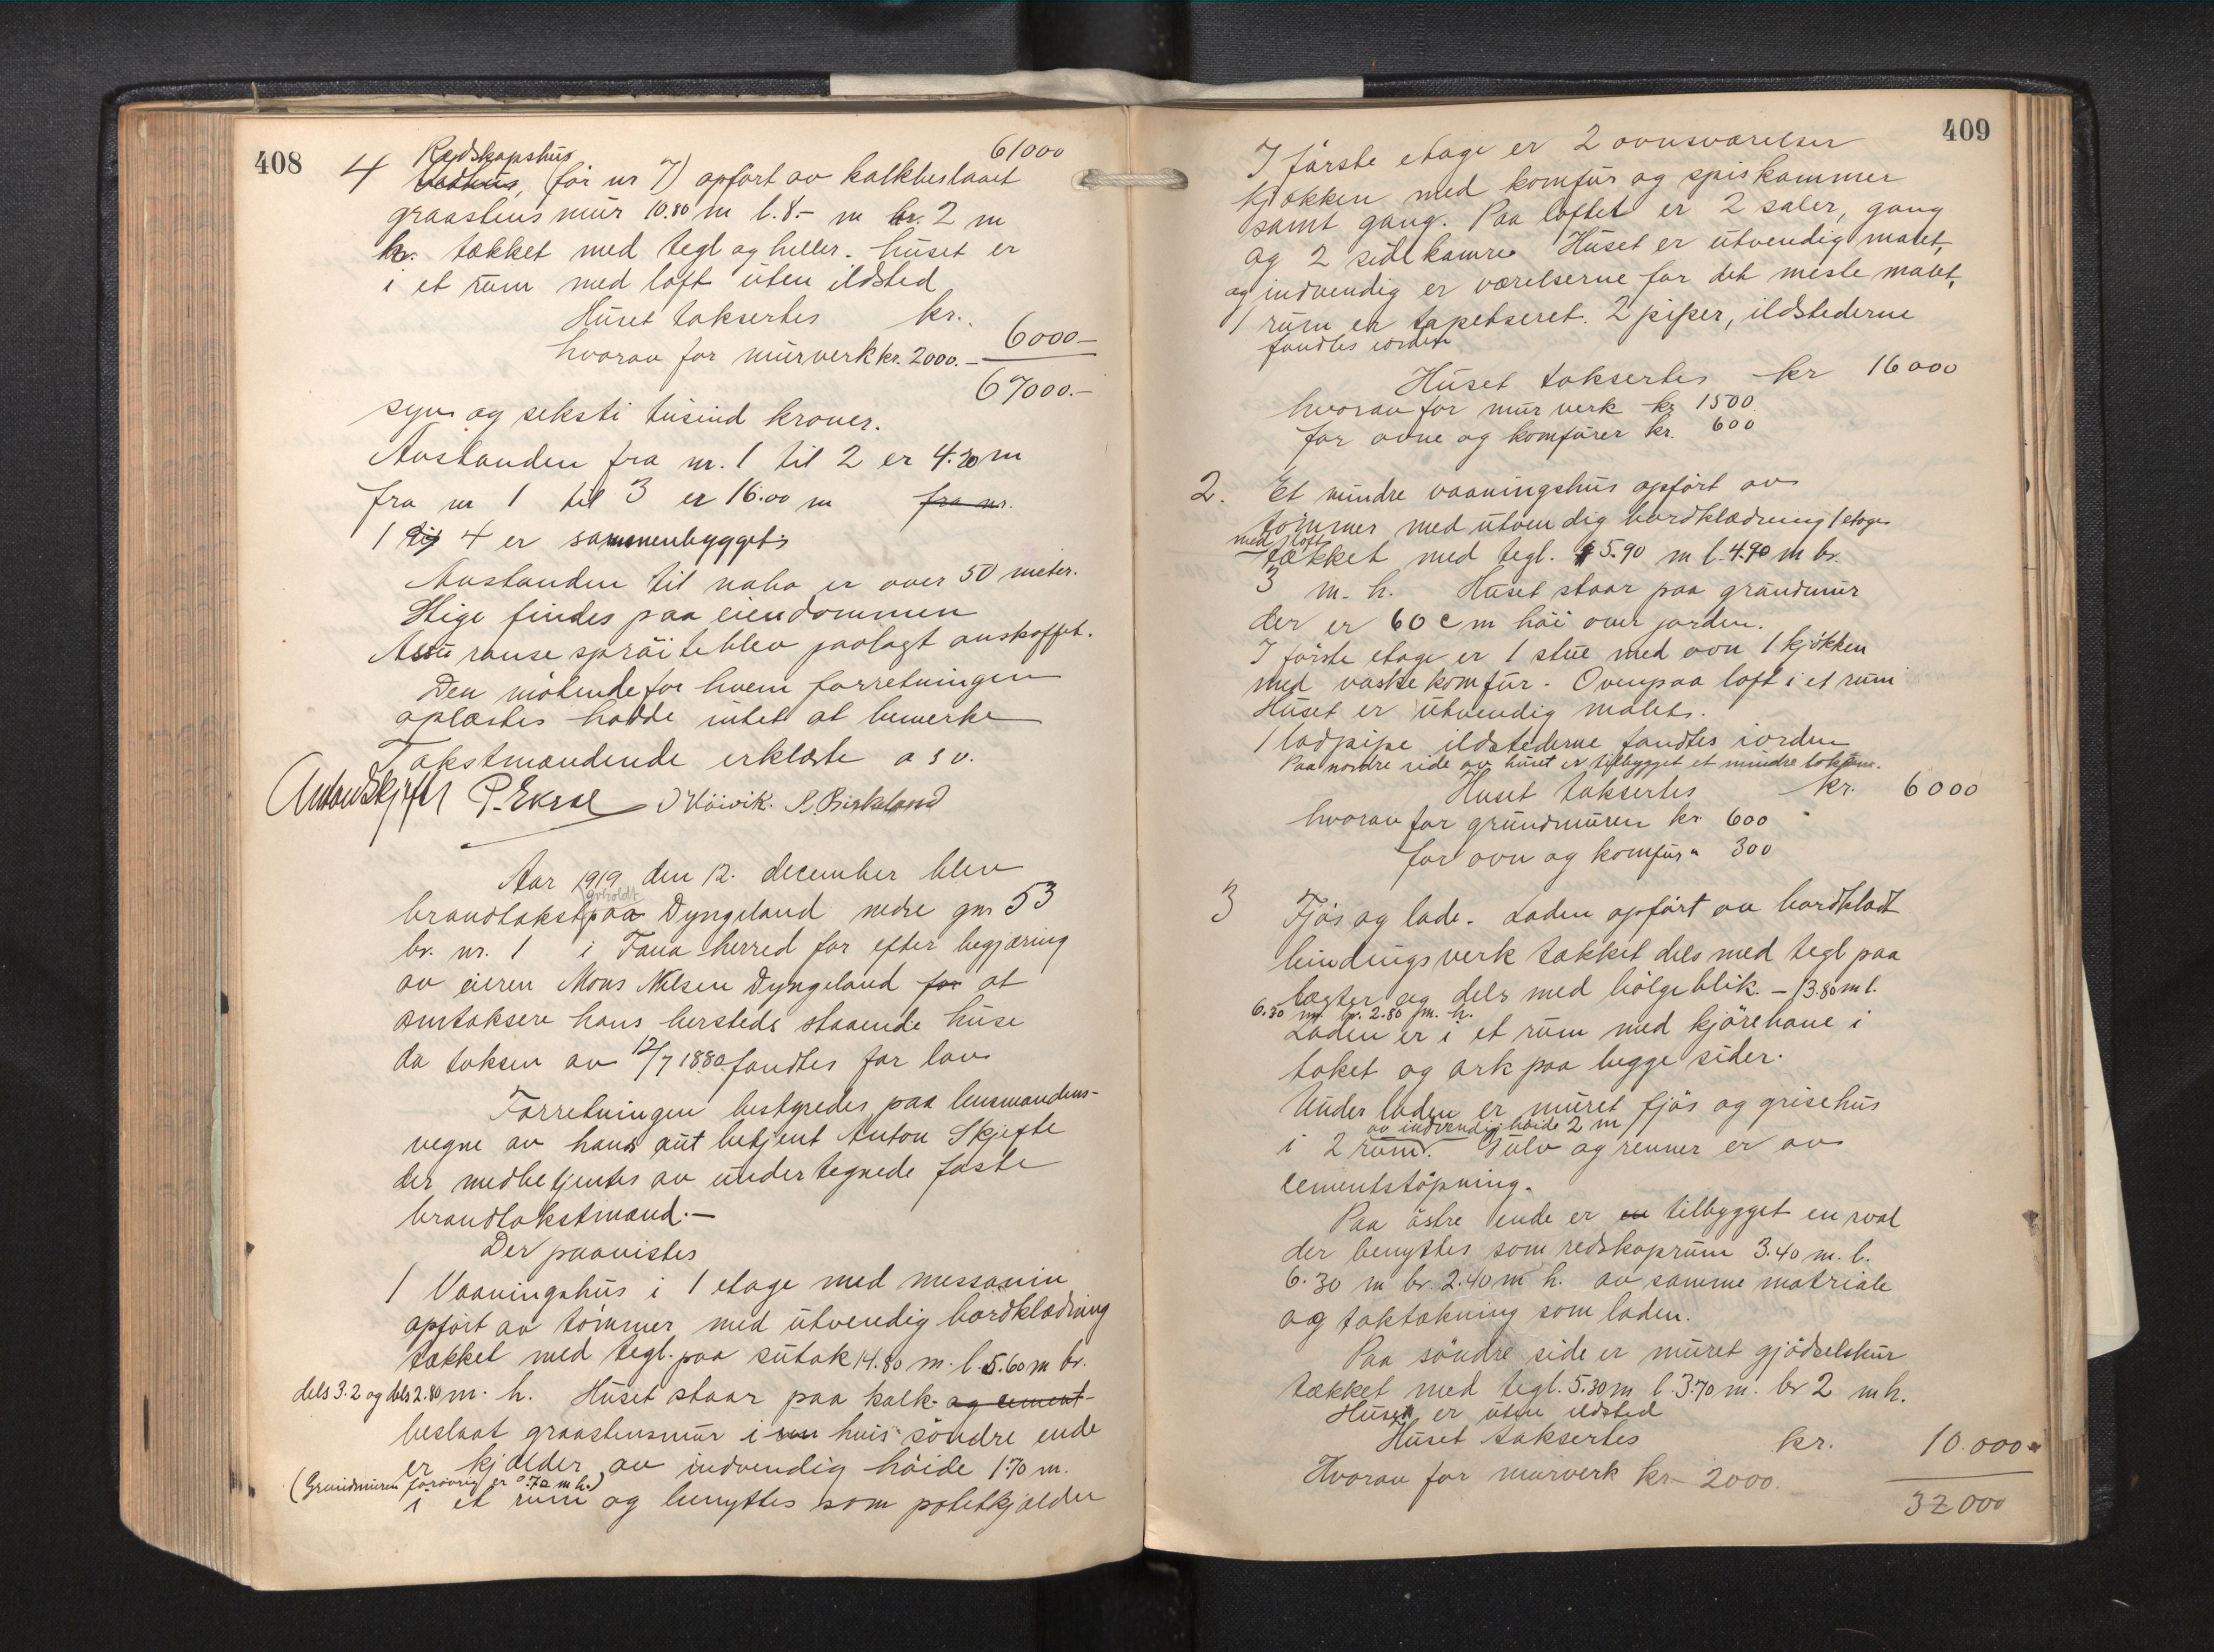 408
61000
4 Redskapshus
vedhus, (før nr 7) opført av kalkbeslaaet
graastens mur 10.80 m l. 8.- m br. 2 m
h. tækket med tegl og heller. huset er
i et rum med loft uten ildsted
Huset taksertes kr.
6000.-
hvorav for murverk kr. 2000.-
67000.-
syv og seksti tusind kroner.
Avstanden fra nr. 1 til 2 er 4.20 m
fra nr 1 til 3 er 16.00 m fra nr.
1 til 4 er sammenbygget.
Avstanden til nabo er over 50 meter.
Stige findes paa eiendommen
Assuranse spröite blev paalagt anskaffet.
Den mötende for hvem forretningen
oplæstes hadde intet at bemerke
Takstmændende erklærte o s v.
Anton Skjefte P. Ekrol O Höivik. A. Birkeland
Aar 1919 den 12. december blev
avholdt
brandtakst paa Dyngeland nedre gnr 53
br. nr. 1 i Fana herred for efter begjæring
av eieren Mons Nilsen Dyngeland for at
omtaksere hans hersteds staaende huse
da taksen av 12/7 1880 fandtes for lav
Forretningen bestyredes paa lensmandens-
vegne av hans aut betjent Anton Skjefte
der medbetjentes av undertegnede faste
brandtakstmænd.-
Der paavistes
1 Vaaningshus i 1 etage med messanin
opfört av tömmer med utvendig bordklædning
tækket med tegl. paa sutak 14.80 m. l. 5.60 m br.
dels 3.2 og dels 2.80 m. h. Huset staar paa kalk- og cement-
beslaat graastensmur i hvis söndre ende
er kjælder av indvendig höide 1.70 m.
(Grundmuren forövrig er 0.70 m h.)
i et rum og benyttes som potetkjælder
409
I förste etage er 2 ovnsværelser
kjökken med komfur og spiskammer
samt gang. Paa loftet er 2 saler, gang
og 2 sidekamre. Huset er utvendig malet,
og indvendig er værelserne for det meste malet,
1 rum er tapetseret. 2 piper, ildstederne
fandtes iorden
Huset taksertes kr 16000
hvorav for murverk kr 1500
for ovne og komfurer kr. 600
2. Et mindre vaaningshus opfört av
tömmer med utvendig bordklædning 1 etage
med loft
tækket med tegl. 5.90 m l. 4.90 m br.
3 m. h. Huset staar paa grundmur
der er 60 cm höi over jorden.
I förste etage er 1 stue med ovn 1 kjökken
med vaskekomfur. Ovenpaa loft i et rum
Huset er utvendig malets.
1 ladpipe ildstederne fandtes iorden
Paa nordre side av huset er tilbygget et mindre lokum.
Huset taksertes kr. 6000
hvorav for grundmuren kr. 600
for ovn og komfur " 300
3 Fjös og lade. Laden opfört av bordklædt
bindingsverk tækket dels med tegl paa
lægter og dels med bölgeblik. - 13.80 m l.
6.30 m. br. 2.80 m. h.
Laden er i et rum med kjörehane i
taket og ark paa begge sider.
Under laden er muret fjös og grisehus
av indvendig höide 2 m
i 2 rum. Gulv og renner er av
cementstöpning.
Paa östre ende er en tilbygget en sval
der benyttes som redskaprum 3.40 m. l.
6.30 m br. 2.40 m h. av samme matriale
og taktækning som laden.
Paa söndre side er muret gjödselskur
tækket med tegl. 5.30 m l. 3.70 m. br 2 m h.
Huset er uten ildsted
Huset taksertes kr. 10.000.-
Hvorav for murverk kr. 2000.
32000